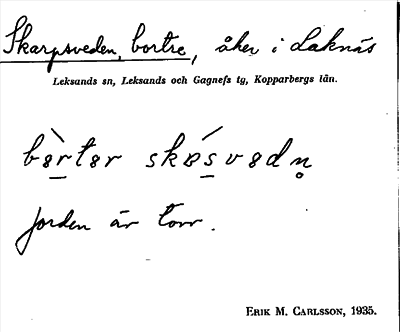 Skarpsveden, bortre, åker i Laknäs
Leksands sn, Leksands och Gagnefs tg, Kopparbergs län.
jorden är torr.
ERIK M. CARLSSON, 1935.